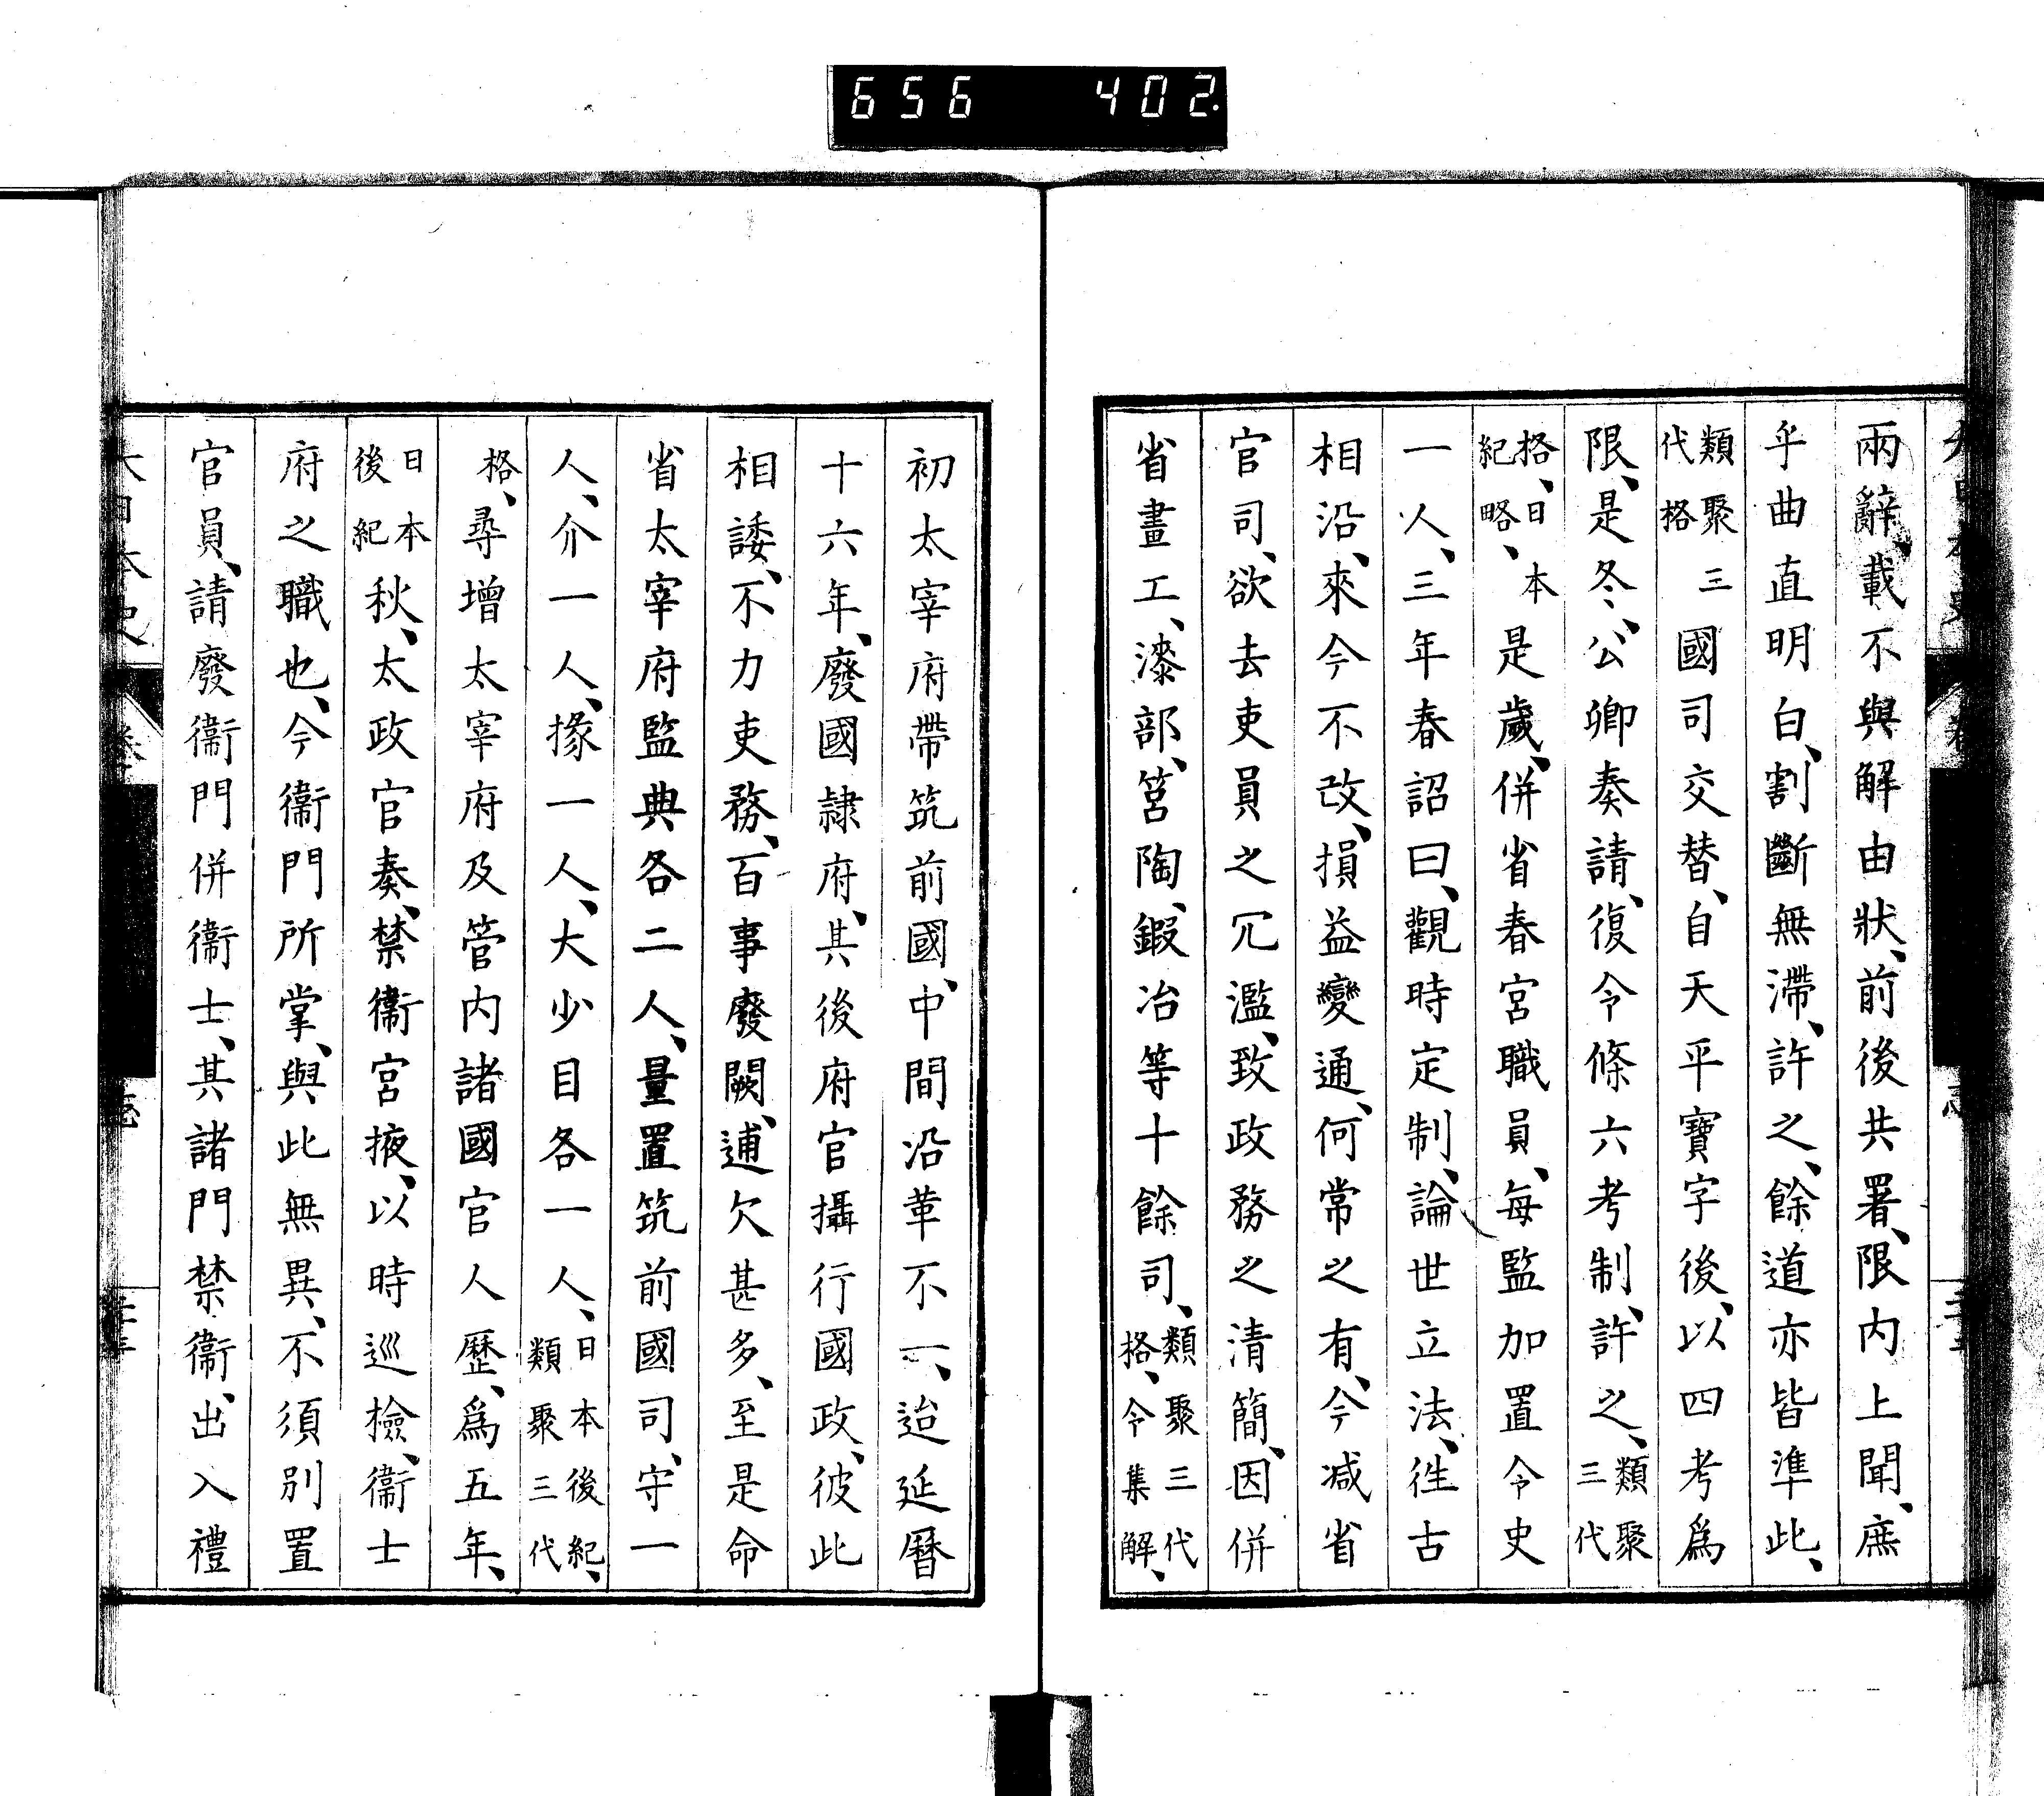 656 402
兩辭、載不與解由狀、前後共署、限內上聞、庶
乎曲直明白、割斷無滯、許之、餘道亦皆準此、
類聚三代格國司交替、自天平寶字後、以四考爲
限、是冬、公卿奏請、復令條六考制、許之、類聚三代
格、日本紀略、是歲、併省春宮職員、每監加置令史
一人、三年春詔曰、觀時定制、論世立法、徃古
相沿、來今不改、損益變通、何常之有、今减省
官司、欲去吏員之冗濫、致政務之清簡、因併
省畫工、漆部、筥陶、鍜冶等十餘司、類聚三代格、令集解、
初太宰府帶筑前國、中間沿革不一、迨延曆
十六年、廢國隸府、其後府官攝行國政、彼此
相諉、不力吏務、百事廢闕、逋欠甚多、至是命
省太宰府監典各二人、量置筑前國司、守一
人、介一人、掾一人、大少目各一人、日本後紀、類聚三代
格、尋增太宰府及管內諸國官人歷、爲五年、
日本後紀秋、太政官奏、禁衞宮掖、以時巡檢、衞士
府之職也、今衞門所掌、與此無異、不須別置
官員、請廢衞門併衞士、其諸門禁衞、出入禮
大日本史